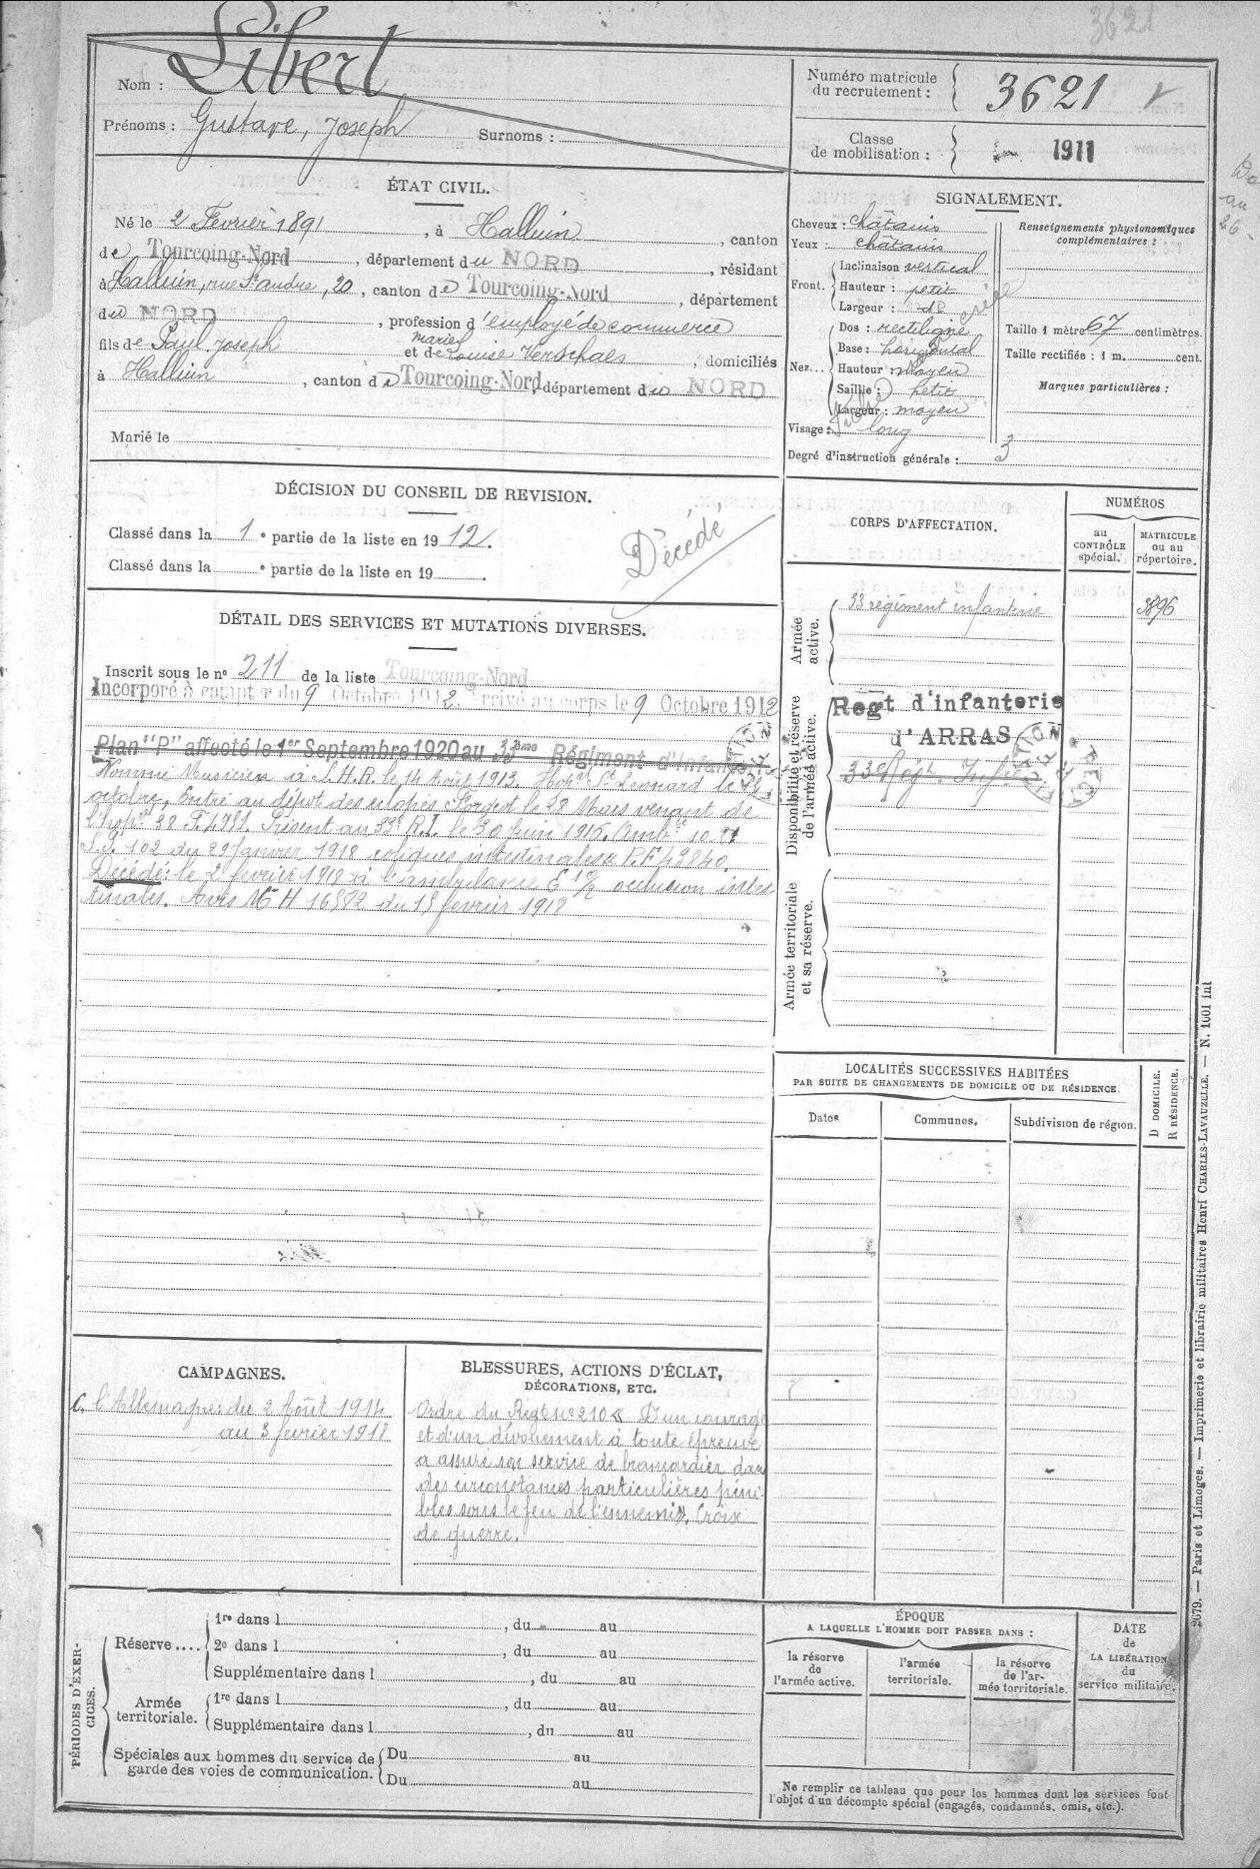 3621
Nom : Libert
Prénoms : Gustave, Joseph Surnoms :
Numéro matricule du recrutement : 3621
Classe de mobilisation : 1911
ÉTAT CIVIL.
Né le 2 Février 1891, à Halluin, canton
de Tourcoing-Nord, département du NORD, résidant
à Halluin, rue St andre, 20, canton de Tourcoing-Nord, département
du NORD, profession d'employé de commerce
fils de Paul Joseph et de marie Louise Verschaes, domiciliés
à Halluin, canton de Tourcoing-Nord, département du NORD
Marié le
SIGNALEMENT.
Cheveux : châtains
Yeux : châtains
Front. Inclinaison vertical
Hauteur : petit
Largeur : do
Nez... Dos : rectiligne
Base : horizontal
Hauteur : moyen
Saillie : petit
Largeur : moyen
Visage : long
Degré d'instruction générale : 3
Renseignements physionomiques complémentaires :
Taille 1 mètre 67 centimètres.
Taille rectifiée : 1 m. cent.
Marques particulières :
DÉCISION DU CONSEIL DE REVISION.
Classé dans la 1e partie de la liste en 1912.
Classé dans la e partie de la liste en 19
Décédé
DÉTAIL DES SERVICES ET MUTATIONS DIVERSES.
Inscrit sous le no 211 de la liste Tourcoing-Nord
Incorporé à compter du 9 Octobre 1912. Arrivé au corps le 9 Octobre 1912
Plan "P" affecté le 1er Septembre 1920 au 33eme Régiment d'Infanterie
Nommé Musicien à S.H.R. le 14 Août 1913. Hopal St Leonard le 21
octobre. Entré au dépôt des éclopés le 28 Mars venant de
l'hopal 38. Présent au 33e R.I. le 30 Juin 1916. Ambce 10.21
S.P. 102 du 29 Janvier 1918 coliques intestinales P.F 43840.
Décédé le 2 février 1918 à l'ambulance E 10/2 occlusion intes
tinales. Avis MC H 16582 du 15 février 1918
CORPS D'AFFECTATION.
NUMÉROS
au CONTRÔLE spécial.
MATRICULE ou au répertoire.
Armée active.
33 régiment infanterie 3896
Disponibilité et réserve de l'armée active.
Regt d'infanterie
d'ARRAS
33e Régt. Infie
Armée territoriale et sa réserve.
LOCALITÉS SUCCESSIVES HABITÉES
PAR SUITE DE CHANGEMENTS DE DOMICILE OU DE RÉSIDENCE.
Dates
Communes.
Subdivision de région.
D DOMICILE.
R RÉSIDENCE.
CAMPAGNES.
C. l'Allemagne du 2 Août 1914
au 3 février 1918
BLESSURES, ACTIONS D'ÉCLAT,
DÉCORATIONS, ETC.
Ordre du Régt no 210 « D'un courage
et d'un dévouement à toute épreuve
a assuré son service de brancardier dans
des circonstances particulières péni
bles sous le feu de l'ennemi ». Croix
de guerre.
PÉRIODES D'EXERCICES.
Réserve.... 1re dans l , du au
2e dans l , du au
Supplémentaire dans l , du au
Armée territoriale. 1re dans l , du au
Supplémentaire dans l , du au
Spéciales aux hommes du service de garde des voies de communication. Du au
Du au
ÉPOQUE
A LAQUELLE L'HOMME DOIT PASSER DANS :
la réserve de l'armée active.
l'armée territoriale.
la réserve de l'armée territoriale.
DATE de LA LIBÉRATION du service militaire.
Ne remplir ce tableau que pour les hommes dont les services font
l'objet d'un décompte spécial (engagés, condamnés, omis, etc.).
2679. — Paris et Limoges. — Imprimerie et librairie militaires Henri CHARLES-LAVAUZELLE. — N. 1001 int